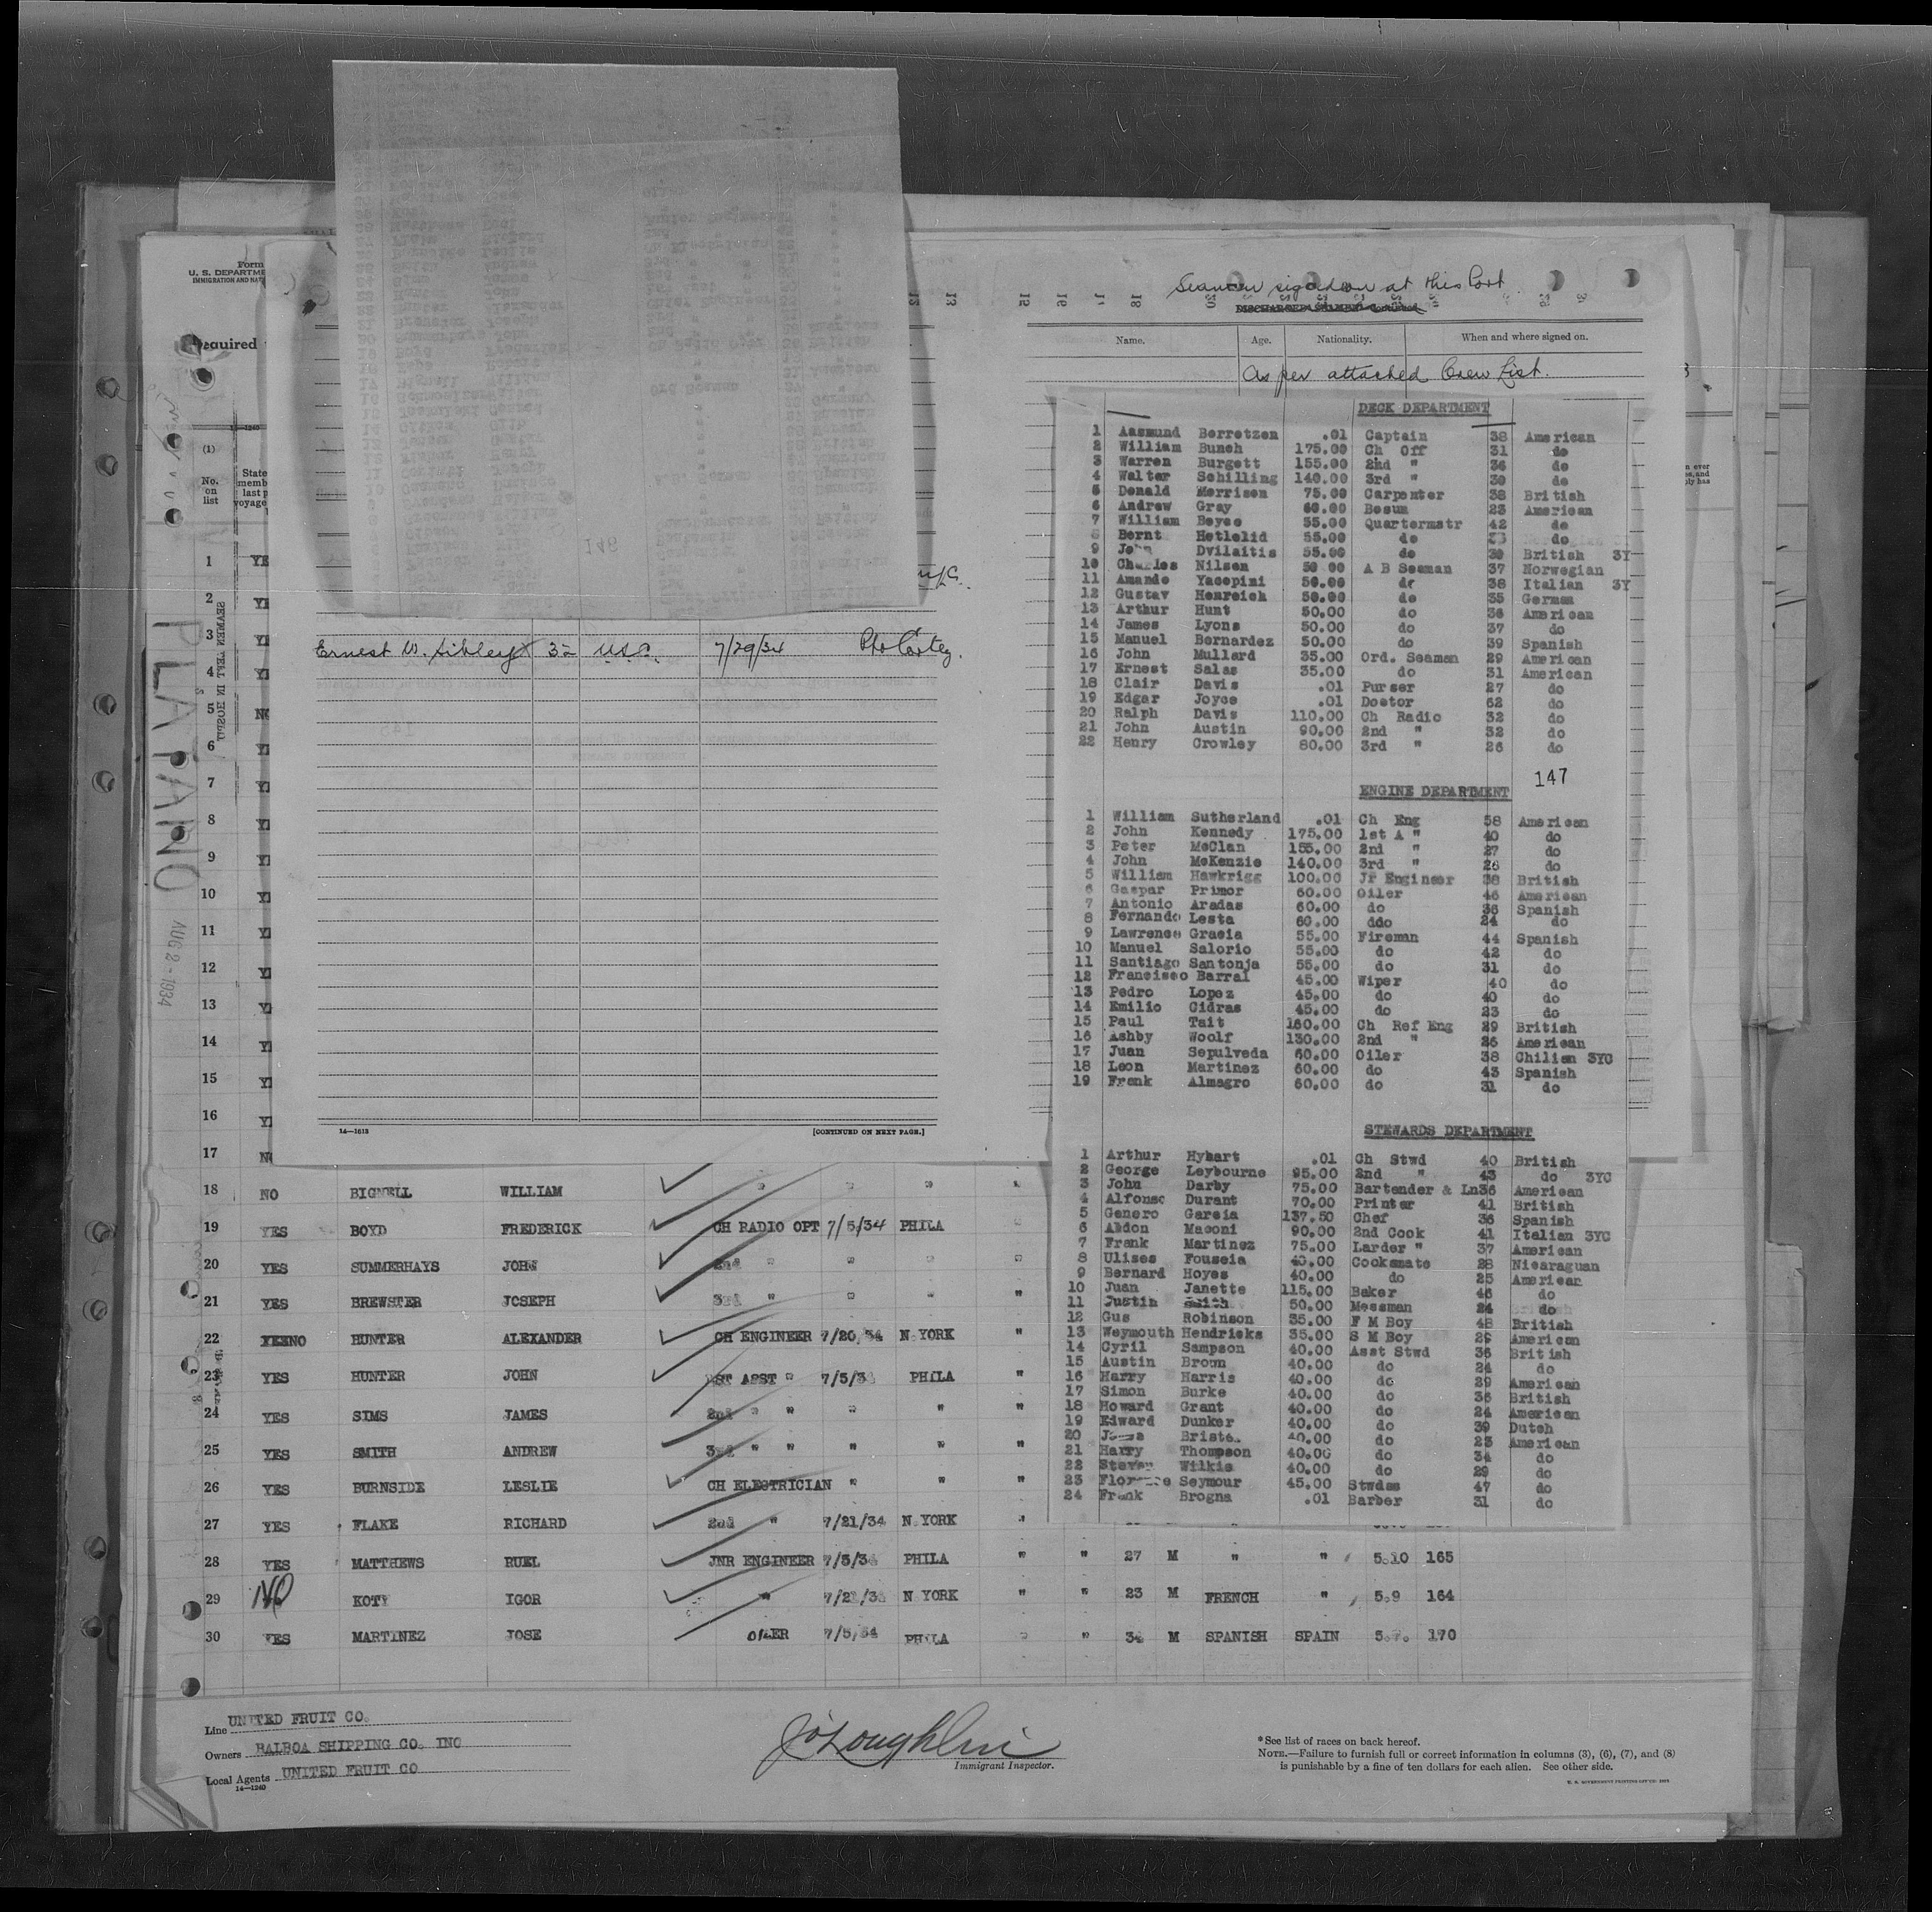 Form
U. S. DEPARTME
IMMIGRATION AND NAT
equired
14—1240
(1)
No. on list
State
memb
last p
voyage
SEAMEN LEFT IN HOSPIT
PLATANO
AUG 2 - 1934
Seamen signed on at this Port
DISCHARGED SEAMEN—Continued
Name. Age. Nationality. When and where signed on.
As per attached Crew List.
DECK DEPARTMENT
1 Aasmund Berretzen .01 Captain 38 American
2 William Bunch 175.00 Ch Off 31 do
3 Warren Burgett 155.00 2nd " 36 do
4 Walter Schilling 140.00 3rd " 30 do
5 Donald Morrison 75.00 Carpenter 38 British
6 Andrew Gray 60.00 Bosun 23 American
7 William Boyce 55.00 Quartermstr 42 do
8 Bernt Hetlelid 55.00 do do
9 John Dvilaitis 55.00 do 30 British 3Y
10 Charles Nilsen 50 00 A B Seaman 37 Norwegian
11 Amando Yacopini 50.00 do 38 Italian 3Y
12 Gustav Henreich 50.00 do 35 German
13 Arthur Hunt 50.00 do 36 American
14 James Lyons 50.00 do 37 do
15 Manuel Bernardez 50.00 do 39 Spanish
16 John Mullard 35.00 Ord. Seaman 29 American
17 Ernest Salas 35.00 do 31 American
18 Clair Davis .01 Purser 27 do
19 Edgar Joyce .01 Doctor 62 do
20 Ralph Davis 110.00 Ch Radio 32 do
21 John Austin 90.00 2nd " 32 do
22 Henry Crowley 80.00 3rd " 26 do
147
ENGINE DEPARTMENT
1 William Sutherland .01 Ch Eng 58 American
2 John Kennedy 175.00 1st A " 40 do
3 Peter McClan 155.00 2nd " 27 do
4 John McKenzie 140.00 3rd " 26 do
5 William Hawkrigg 100.00 Jr Engineer 38 British
6 Gaspar Primor 60.00 Oiler 46 American
7 Antonio Aradas 60.00 do 36 Spanish
8 Fernando Lesta 60.00 ddo 24 do
9 Lawrence Gracia 55.00 Fireman 44 Spanish
10 Manuel Salorio 55.00 do 42 do
11 Santiago Santonja 55.00 do 31 do
12 Francisco Barral 45.00 Wiper 40 do
13 Pedro Lopez 45.00 do 40 do
14 Emilio Cidras 45.00 do 23 do
15 Paul Tait 160.00 Ch Ref Eng 29 British
16 Ashby Woolf 130.00 2nd " 26 American
17 Juan Sepulveda 60.00 Oiler 38 Chilian 3YC
18 Leon Martinez 60.00 do 43 Spanish
19 Frank Almagro 60.00 do 31 do
STEWARDS DEPARTMENT
1 Arthur Hybart .01 Ch Stwd 40 British
2 George Leybourne 95.00 2nd " 43 do 3YC
3 John Darby 75.00 Bartender & Ln36 American
4 Alfonso Durant 70.00 Printer 41 British
5 Genero Garcia 137.50 Chef 36 Spanish
6 Abdon Maconi 90.00 2nd Cook 41 Italian 3YC
7 Frank Martinez 75.00 Larder " 37 American
8 Ulises Fouseia 40.00 Cooksmate 28 Nicaraguan
9 Bernard Hoyes 40.00 do 25 American
10 Juan Janette 115.00 Baker 46 do
11 Justin Smith 50.00 Messman 24 do
12 Gus Robinson 35.00 F M Boy 48 British
13 Weymouth Hendricks 35.00 S M Boy 29 American
14 Cyril Sampson 40.00 Asst Stwd 36 British
15 Austin Brown 40.00 do 24 do
16 Harry Harris 40.00 do 29 American
17 Simon Burke 40.00 do 36 British
18 Howard Grant 40.00 do 24 American
19 Edward Dunker 40.00 do 39 Dutch
20 40.00 do 23 American
21 Harry Thompson 40.00 do 34 do
22 Steven Wilkis 40.00 do 29 do
23 Florence Seymour 45.00 Stwdss 47 do
24 Frank Brogna .01 Barber 31 do
146
Ernest W. Sibley 32 U.S.C. 7/29/34
14—1613 [CONTINUED ON NEXT PAGE.]
1 YE
2 YE
3 YE
4 YE
5 NO
6 YE
7 YE
8 YE
9 YE
10 YE
11 YE
12 YE
13 YE
14 YE
15 YE
16 YE
17 NO
18 NO BIGNELL WILLIAM " " " "
19 YES BOYD FREDERICK CH RADIO OPT 7/5/34 PHILA "
20 YES SUMMERHAYS JOHN 2nd " " " "
21 YES BREWSTER JOSEPH 3rd " " " "
22 YESNO HUNTER ALEXANDER CH ENGINEER 7/20/34 N YORK "
23 YES HUNTER JOHN 1ST ASST " 7/5/34 PHILA "
24 YES SIMS JAMES 2nd " " " " "
25 YES SMITH ANDREW 3rd " " " " "
26 YES BURNSIDE LESLIE CH ELECTRICIAN " " "
27 YES FLAKE RICHARD 2nd " 7/21/34 N YORK "
28 YES MATTHEWS RUEL JNR ENGINEER 7/5/34 PHILA " " 27 M " " 5.10 165
29 NO KOTY IGOR " 7/21/34 N YORK " " 23 M FRENCH " 5.9 164
30 YES MARTINEZ JOSE OILER 7/5/34 PHILA " " 34 M SPANISH SPAIN 170
Line UNITED FRUIT CO.
Owners BALBOA SHIPPING CO. INC
Local Agents UNITED FRUIT CO
14—1240
J O'Loughlin
Immigrant Inspector.
*See list of races on back hereof.
NOTE.—Failure to furnish full or correct information in columns (3), (6), (7), and (8)
is punishable by a fine of ten dollars for each alien. See other side.
U. S. GOVERNMENT PRINTING OFFICE